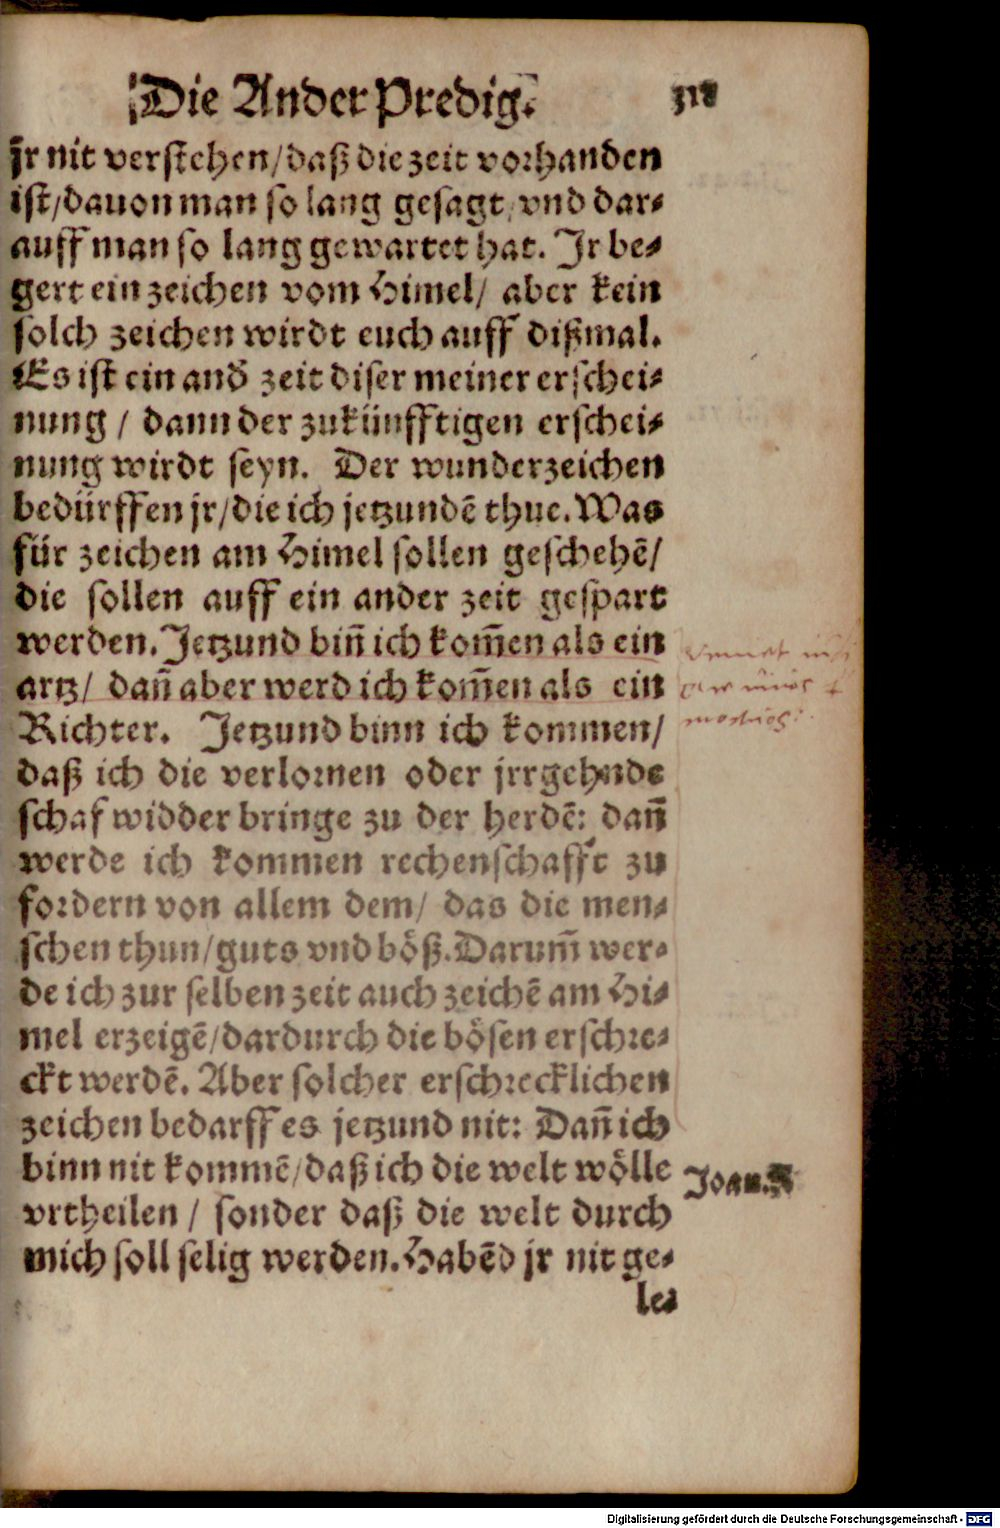 Die Ander Predig.
jr nit verstehen/daß die zeit vorhanden
ist/dauon man so lang gesagt/vnd dar⸗
auff man so lang gewartet hat. Jr be⸗
gert ein zeichen vom Himel/ aber kein
solch zeichen wirdt euch auff dißmal.
Es ist ein and̃ zeit diser meiner erschei⸗
nung / dann der zukünfftigen erschei⸗
nung wirdt seyn. Der wunderzeichen
bedürffen jr/die ich jetzundẽ thue. Was
für zeichen am Himel sollen geschehẽ/
die sollen auff ein ander zeit gespart
werden. Jetzund biñ ich kom̃en als ein
artz/ dañ aber werd ich kom̃en als ein
Richter. Jetzund binn ich kommen/
daß ich die verlornen oder jrrgehnde
schaf widder bringe zu der herdẽ: dañ
werde ich kommen rechenschafft zu
fordern von allem dem/ das die men⸗
schen thun/guts vnd böß. Darum̃ wer⸗
de ich zur selben zeit auch zeichẽ am Hi⸗
mel erzeigẽ/dardurch die bösen erschre⸗
ckt werdẽ. Aber solcher erschrecklichen
zeichen bedarff es jetzund nit: Dañ ich
binn nit kommẽ/daß ich die welt wölle
Joan.
vrtheilen / sonder daß die welt durch
mich soll selig werden. Habẽd jr nit ge⸗
le⸗
Digitalisierung gefördert durch die Deutsche Forschungsgemeinschaft - DFG